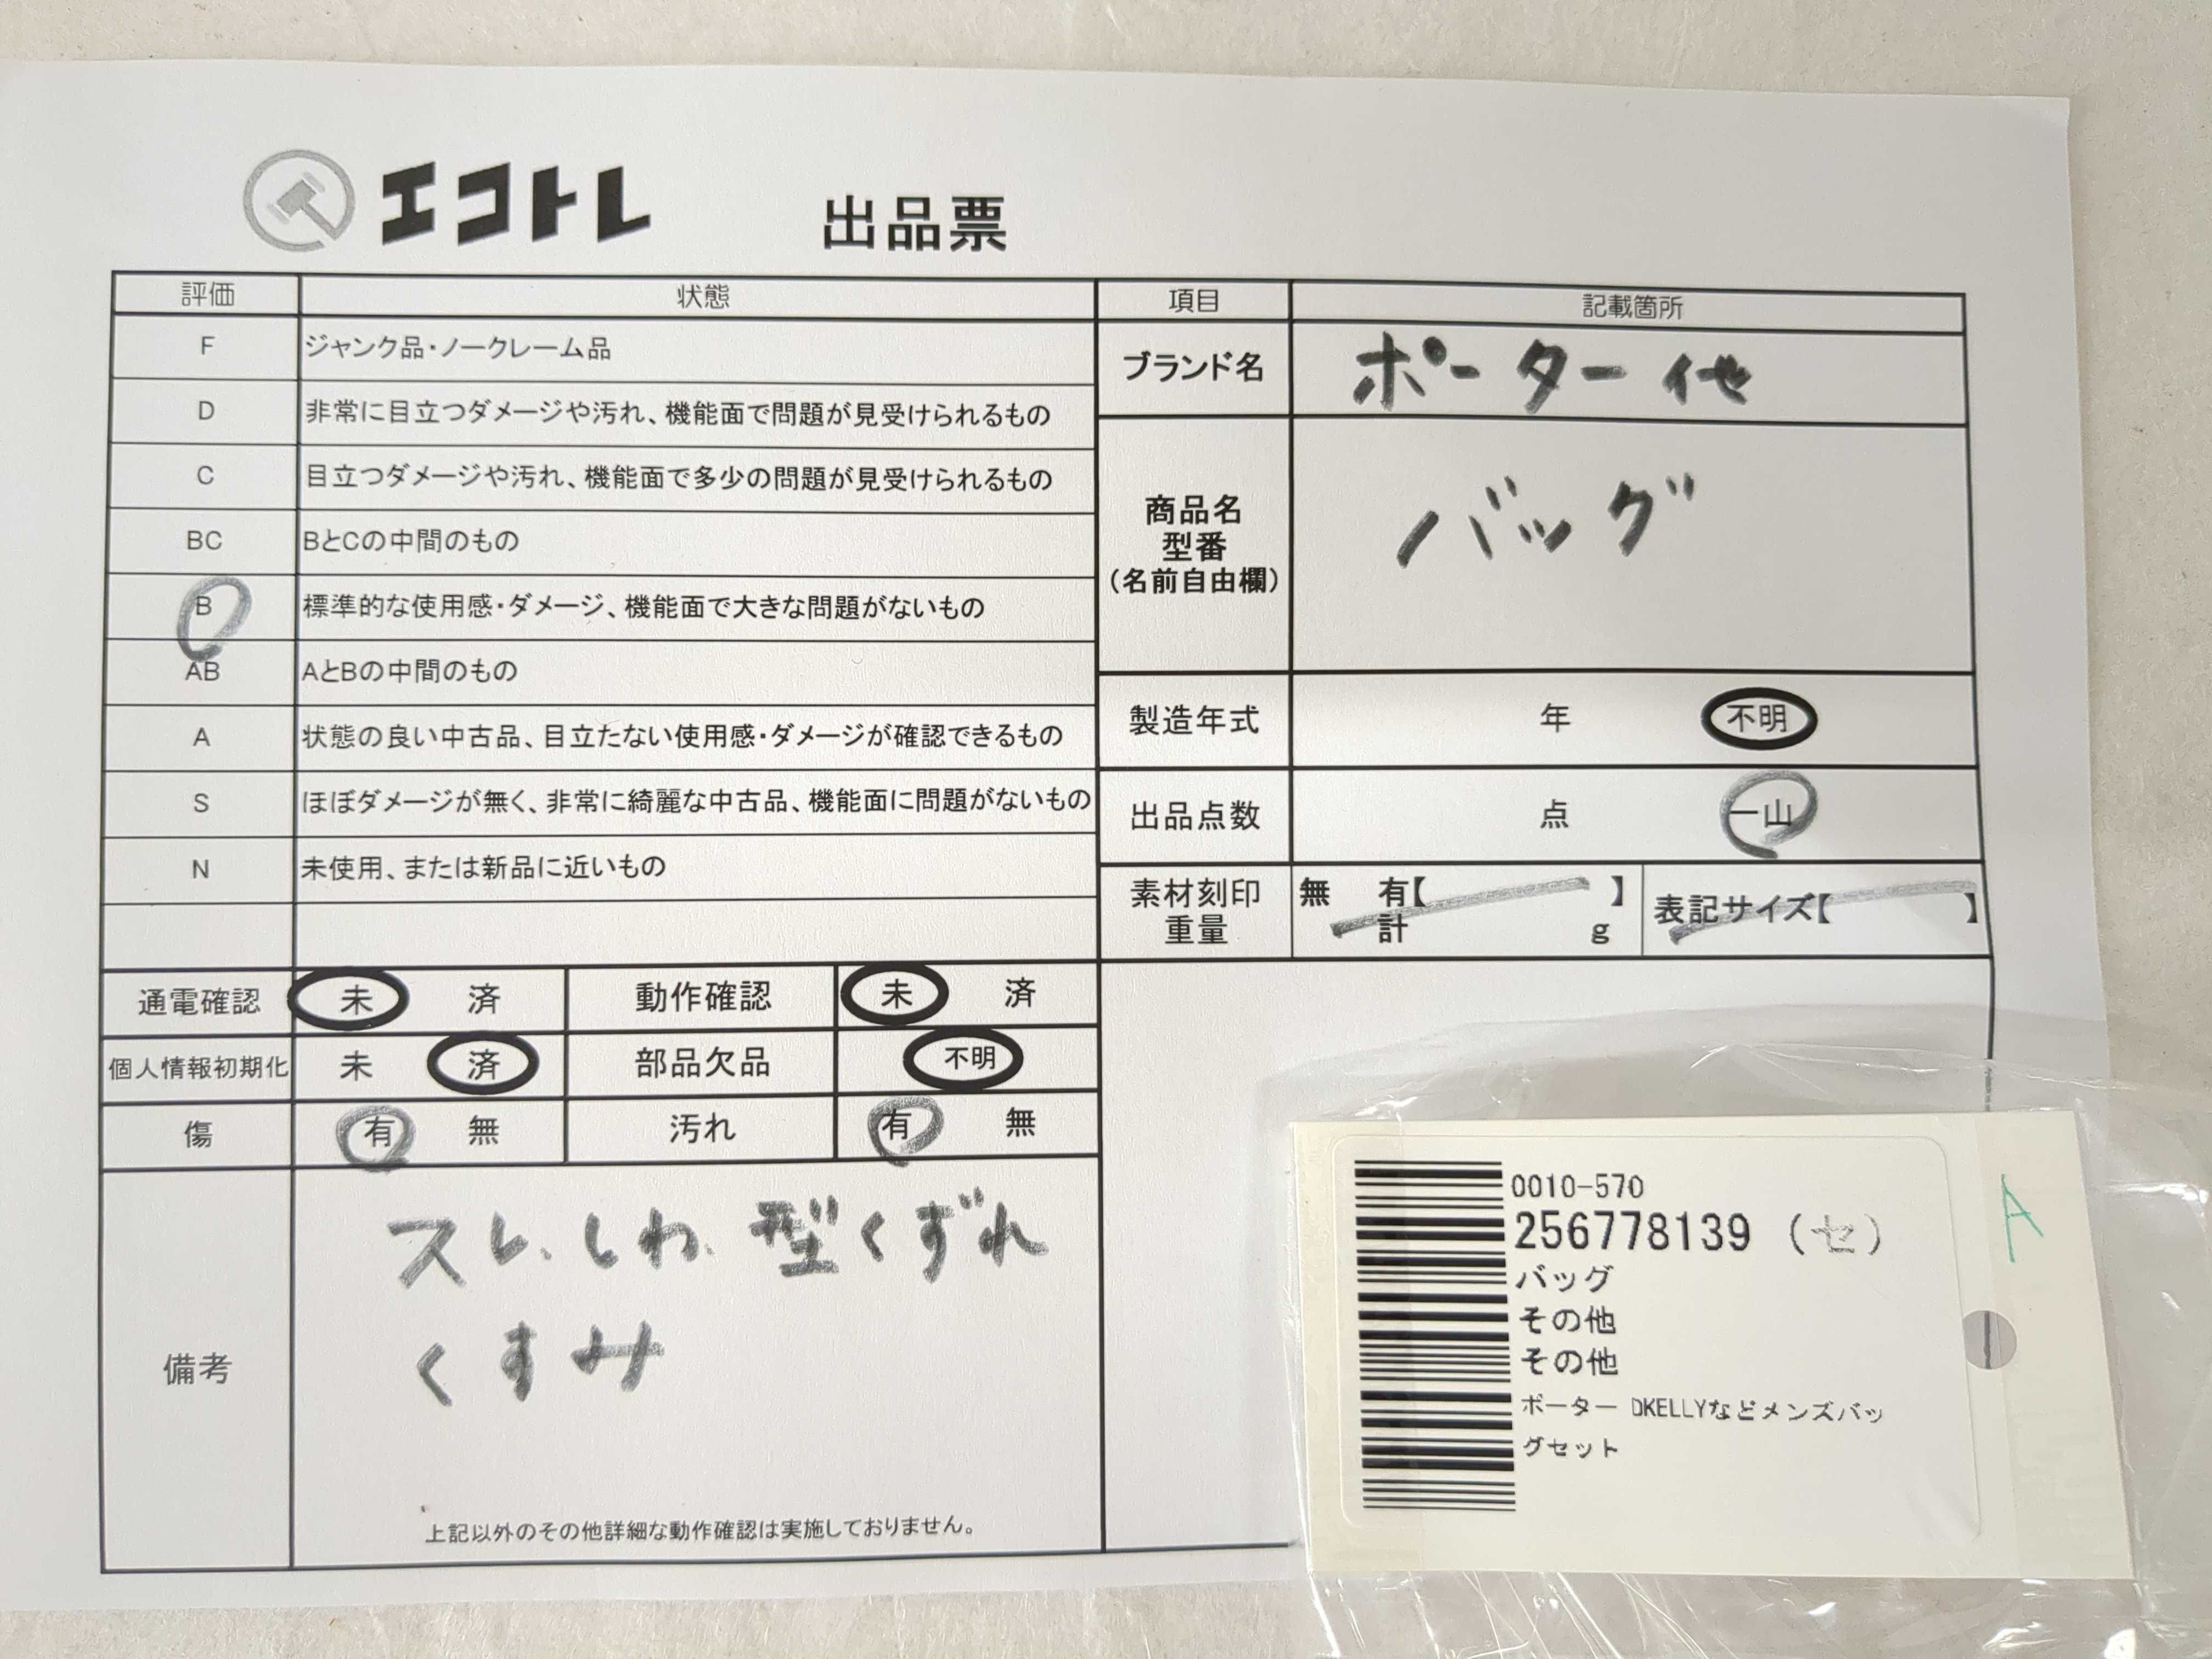 エコトレ 出品票
評価 状態
F ジャンク品・ノークレーム品
D 非常に目立つダメージや汚れ、機能面で問題が見受けられるもの
C 目立つダメージや汚れ、機能面で多少の問題が見受けられるもの
BC BとCの中間のもの
B 標準的な使用感・ダメージ、機能面で大きな問題がないもの
AB AとBの中間のもの
A 状態の良い中古品、目立たない使用感・ダメージが確認できるもの
S ほぼダメージが無く、非常に綺麗な中古品、機能面に問題がないもの
N 未使用、または新品に近いもの
項目 記載箇所
ブランド名 ポーター他
商品名
型番
(名前自由欄)
バッグ
製造年式 年 不明
出品点数 点 一山
素材刻印 無 有【 】
重量 計 g
表記サイズ【 】
通電確認 未 済 動作確認 未 済
個人情報初期化 未 済 部品欠品 不明
傷 有 無 汚れ 有 無
備考
スレ、しわ、型くずれ
くすみ
上記以外のその他詳細な動作確認は実施しておりません。
0010-570
256778139 (セ)
バッグ
その他
その他
ポーター DKELLYなどメンズバッ
グセット
A